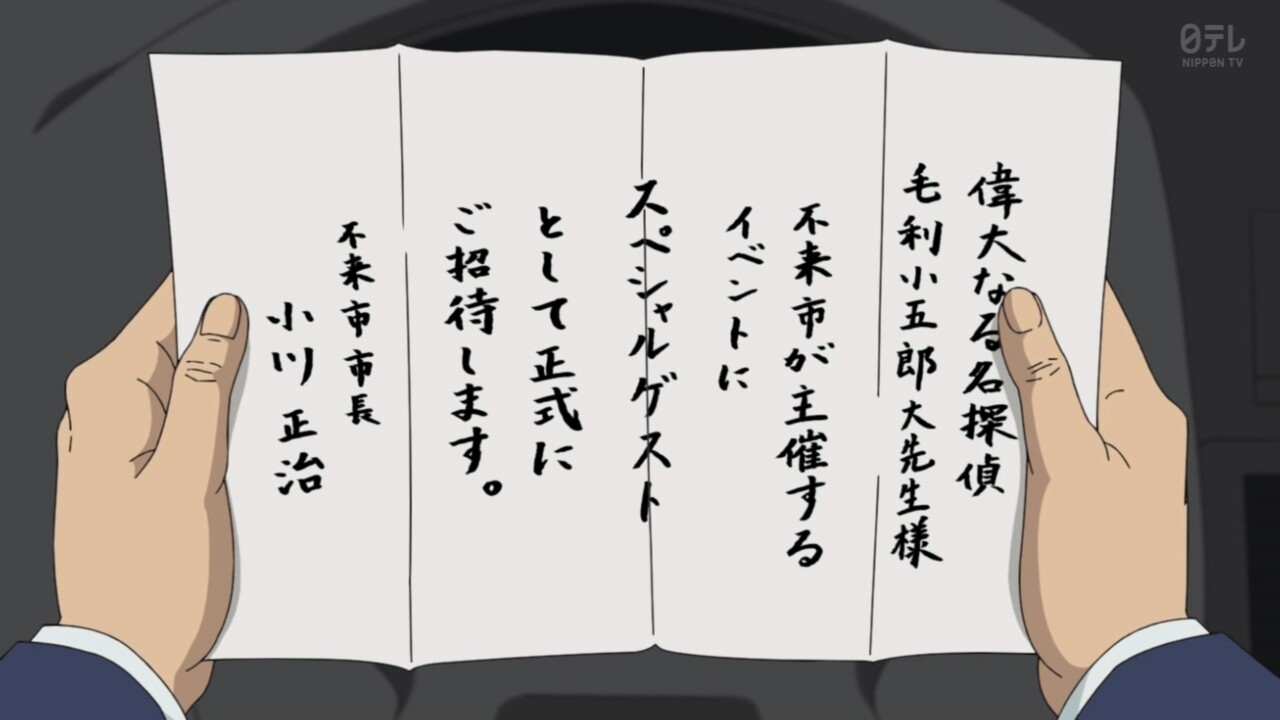 偉大なる名探偵
毛利小五郎大先生様
不来市が主催する
イベントに
スペシャルゲスト
として正式に
ご招待します。
不来市市長
小川 正治
日テレ
NIPPON TV